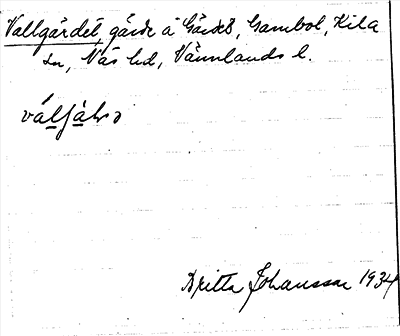 Vallgärdet, gärde å Gärdet, Gambol, Kila
sn, Näs hd, Värmlands l.
Britta Johansson 1934